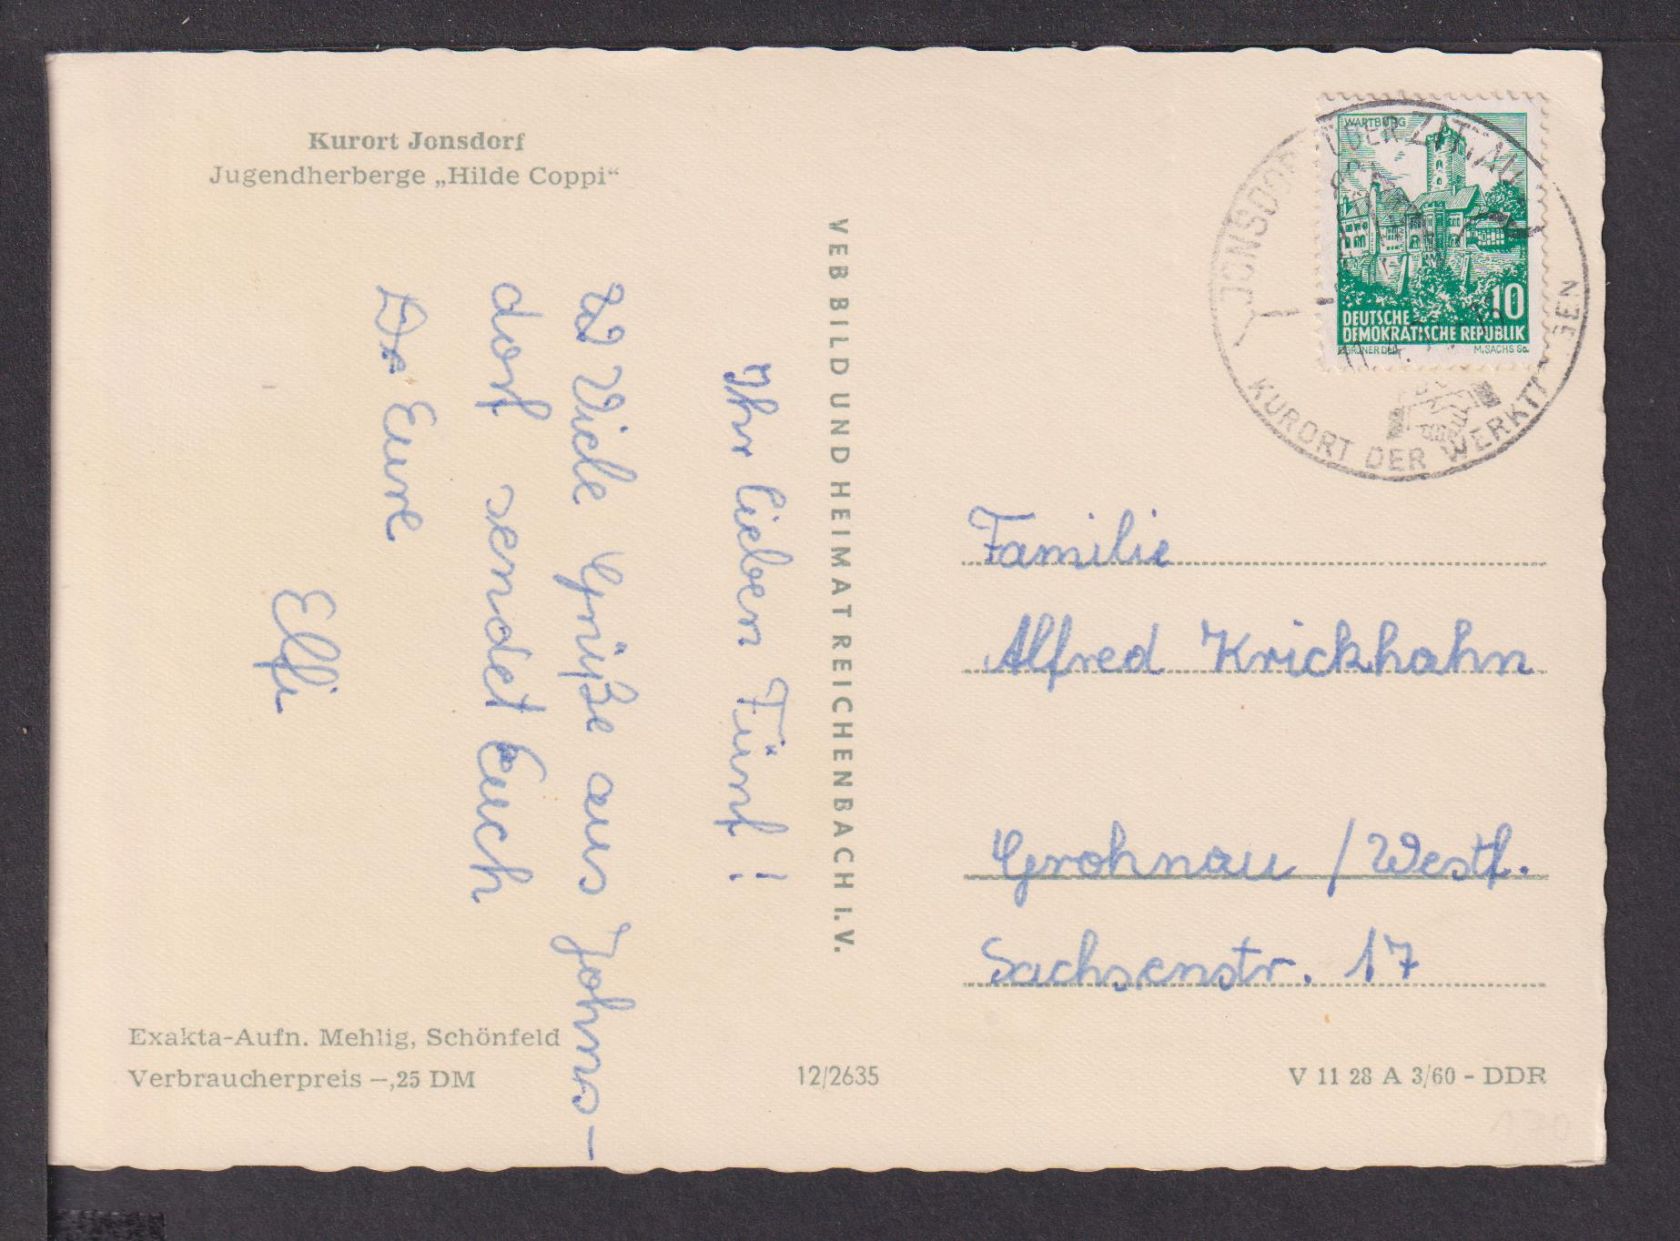 Kurort Jonsdorf
Jugendherberge „Hilde Coppi“
Ihr lieben Fünf!
Viele Grüße aus Johns-
dorf sendet Euch
Eure
Elfi
VEB BILD UND HEIMAT REICHENBACH I.V.
Exakta-Aufn. Mehlig, Schönfeld
Verbraucherpreis –,25 DM
12/2635
WARTBURG
10
DEUTSCHE
DEMOKRATISCHE REPUBLIK
M.SACHS Sc.
JONSDORF ÜBER ZITTAU
KURORT DER
Familie
Alfred Krickhahn
Grohnau / Westf.
Sachsenstr. 17
V 11 28 A 3/60 - DDR
170